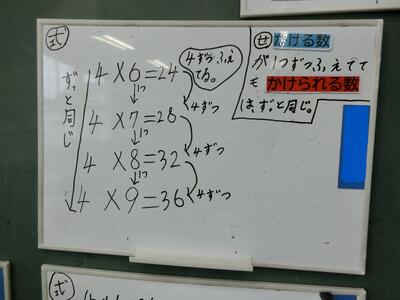 式
4ずつふえ
てる。
4×6=24
1つ
4ずつ
4×7=28
1つ
4ずつ
4×8=32
1つ
4ずつ
4×9=36
ずっと同じ
せ かける数
が1つずつふえてて
も かけられる数
は、ずっと同じ。
式